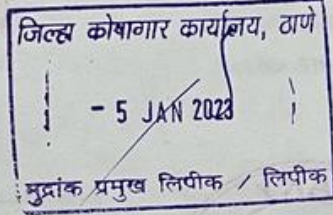 जिल्हा कोषागार कार्यालय, ठाणे
- 5 JAN 2023
मुद्रांक प्रमुख लिपीक / लिपीक